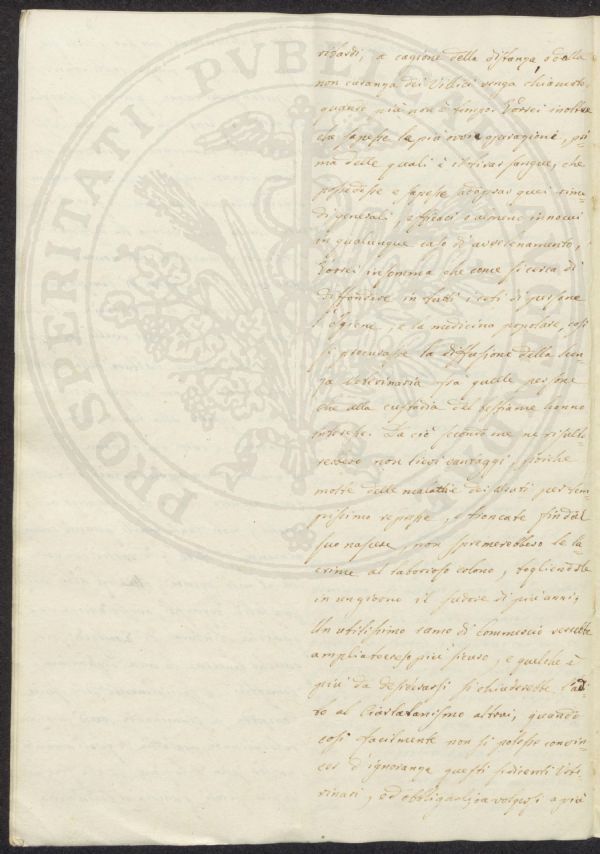 ritardi, a cagione della distanza, o della
non curanza dei Villici venga chiamato
quando più non è tempo. Vorrei inoltre
che sapesse le più ovvie operazioni, pri-
ma delle quali è il trar sangue, che
possedesse e sapesse adoprar quei rime-
di generali, efficaci o almeno innocui
in qualunque caso di avvelenamento,
Vorrei insomma che come si cerca di
diffondere in tutti i ceti di persone
l'igiene, e la medicina popolare, così
si procurasse la diffusione della scien-
za Veterinaria fra quelle persone
che alla custodia del bestiame hanno
interesse. Da ciò secondo me ne risulte-
rebbero non lievi vantaggi, poiche
molte delle malattie dei bruti per tem-
pissimo represse, e troncate fin dal
suo nascere, non spremerebbero le la-
crime al laborioso colono, togliendole
in un giorno il sudore di più anni,
Un utilissimo ramo di Commercio verrebbe
ampliato reso più sicuro, e quel che è
più da desiderarsi si chiuderebbe l'adi-
to al Ciarlatanismo altrui, quando
così facilmente non si potesse convin-
cer d'ignoranza questi sedicenti Vete-
rinari, ed obbligarli a volgersi a più
PROSPERITATI PUBLICAE